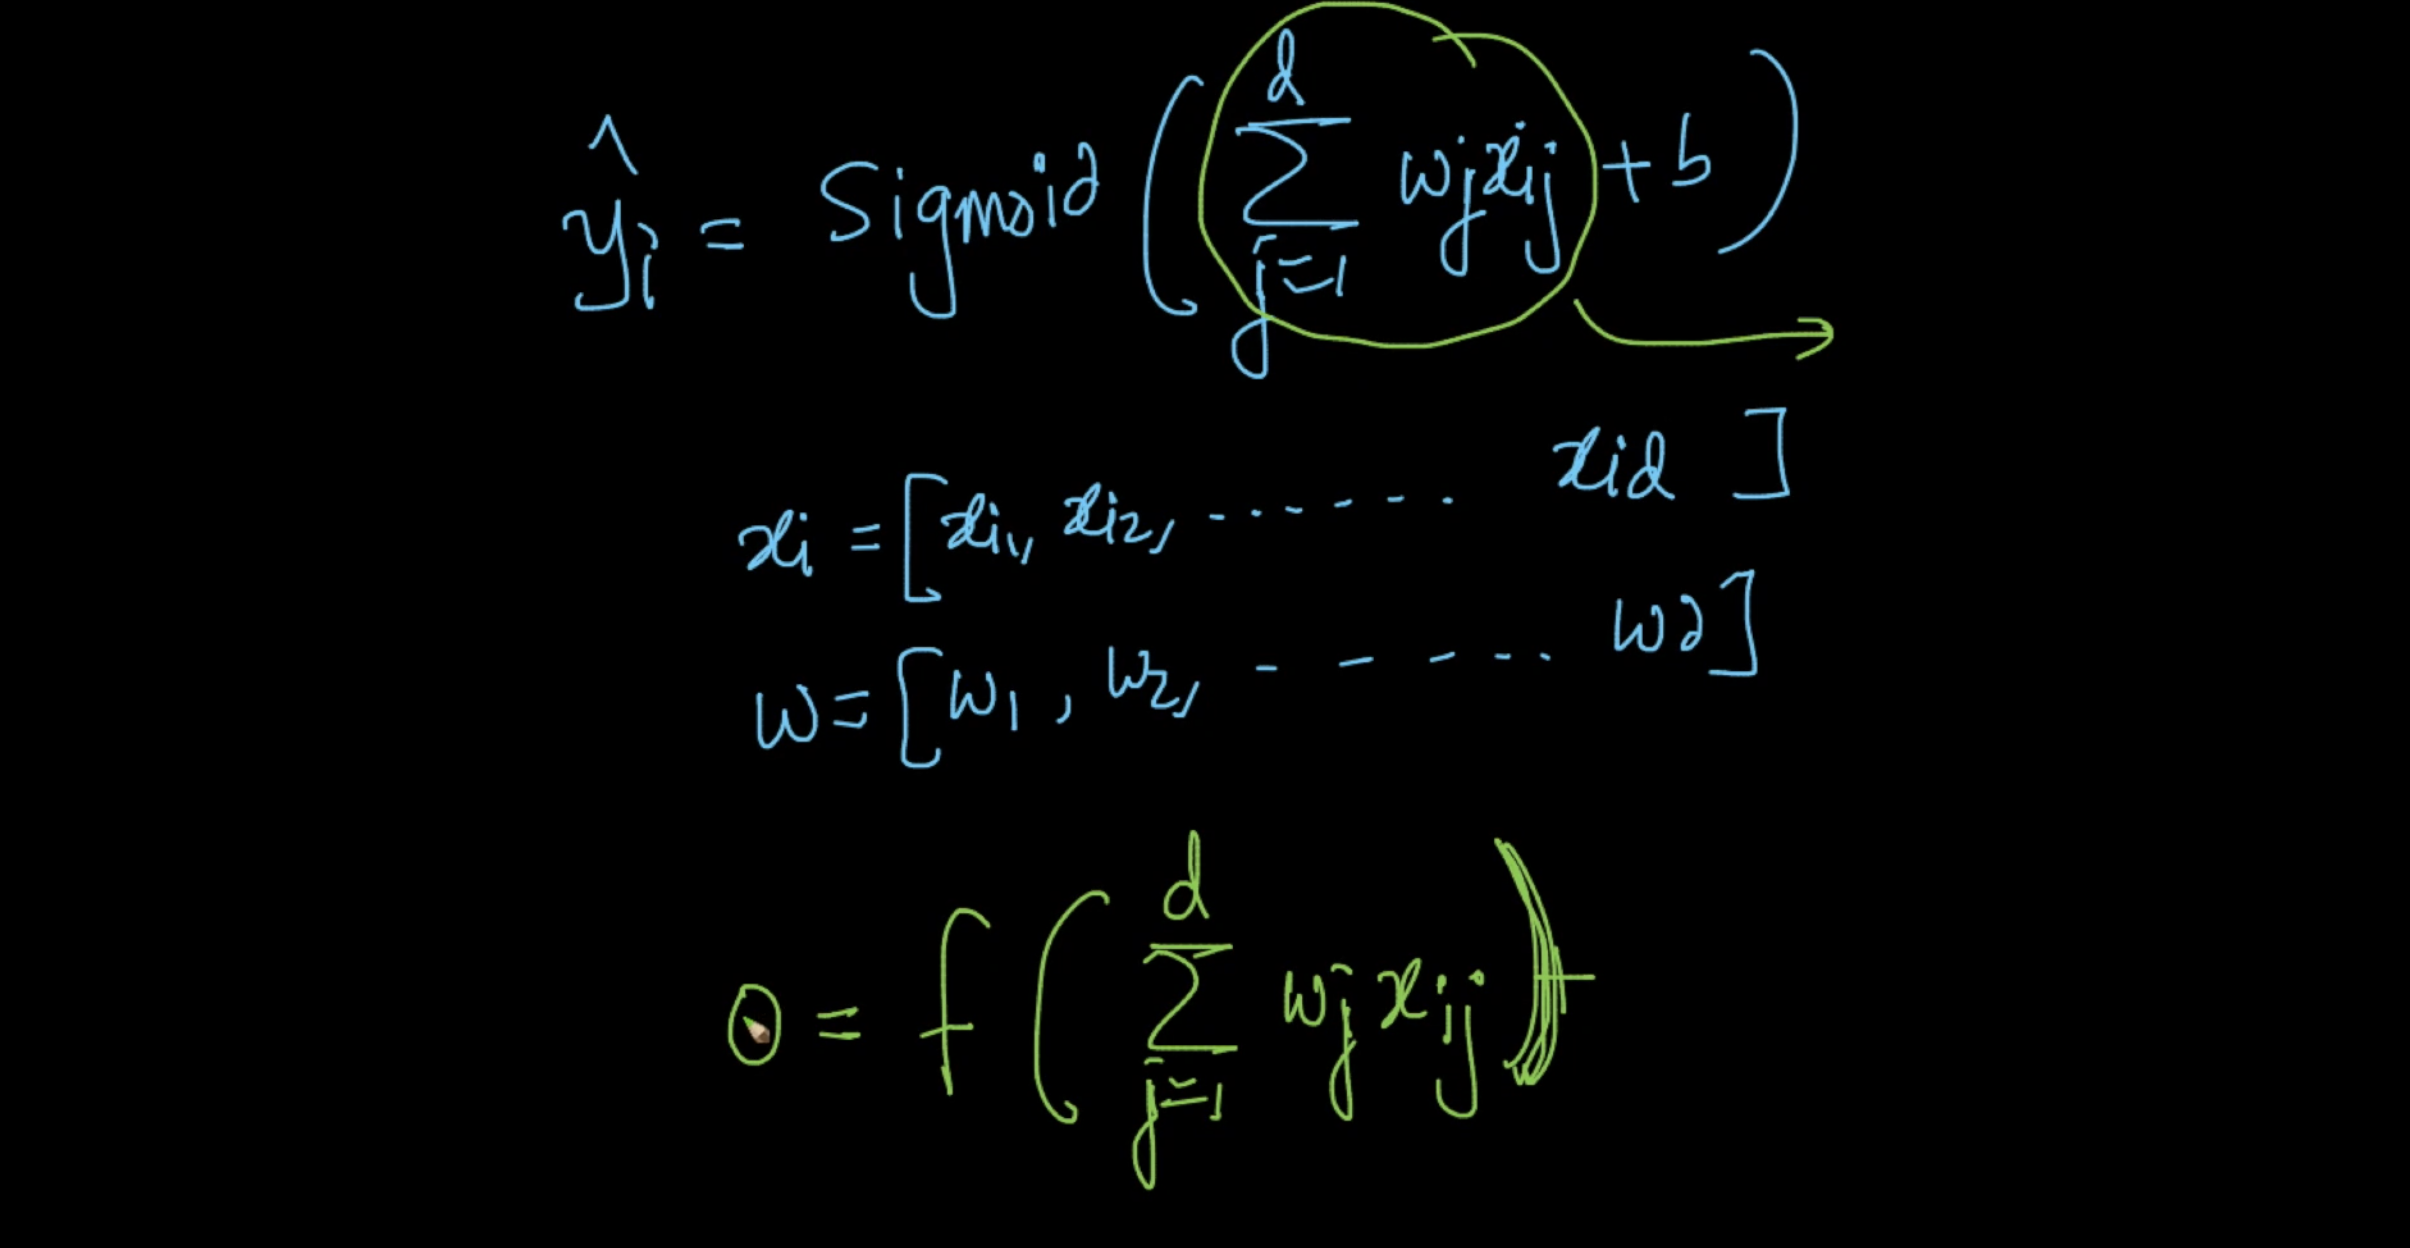 ŷi = Sigmoid ( d Σ j=1 wj xij + b )
xi = [ xi1, xi2, ------- xid ]
w = [ w1 , w2, - - - - - - wd ]
O = f ( d Σ j=1 wj xij ) +